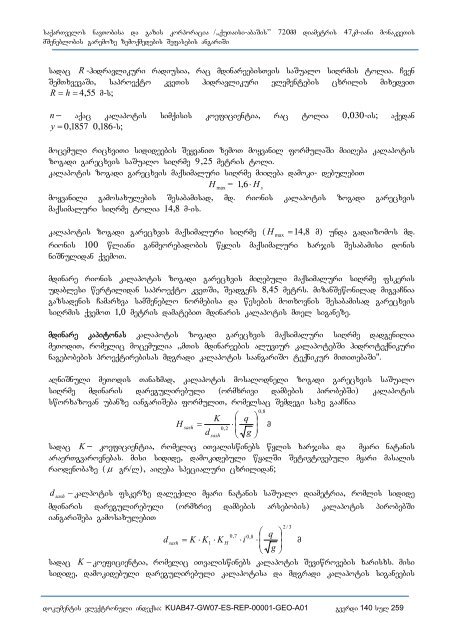 საქართველოს ნავთობისა და გაზის კორპორაცია /„ქუთაისი-აბაშის” 720მმ დიამეტრის 47კმ-იანი მონაკვეთის
მშენებლობის გარემოზე ზემოქმედების შეფასების ანგარიში
სადაც R -ჰიდრავლიკური რადიუსია, რაც მდინარეებისთვის საშუალო სიღრმის ტოლია. ჩვენ
შემთხვევაში, საპროექტო კვეთის ჰიდრავლიკური ელემენტების ცხრილის მიხედვით
R = h = 4,55 მ-ს;
n − აქაც კალაპოტის სიმქისის კოეფიციენტია, რაც ტოლია 0,030-ის; აქედან
y = 0,1857 0,186-ს;
მოცემული რიცხვითი სიდიდეების შეყვანით ზემოთ მოყვანილ ფორმულაში მიიღება კალაპოტის
ზოგადი გარეცხვის საშუალო სიღრმე 9,25 მეტრის ტოლი.
კალაპოტის ზოგადი გარეცხვის მაქსიმალური სიღრმე მიიღება დამოკი- დებულებით
H max = 1,6 · H s
მოყვანილი გამოსახულების შესაბამისად, მდ. რიონის კალაპოტის ზოგადი გარეცხვის
მაქსიმალური სიღრმე ტოლია 14,8 მ-ის.
კალაპოტის ზოგადი გარეცხვის მაქსიმალური სიღრმე ( H max = 14,8 მ) უნდა გადაიზომოს მდ.
რიონის 100 წლიანი განმეორებადობის წყლის მაქსიმალური ხარჯის შესაბამისი დონის
ნიშნულიდან ქვემოთ.
მდინარე რიონის კალაპოტის ზოგადი გარეცხვის მიღებული მაქსიმალური სიღრმე ფსკერის
უდაბლესი წერტილიდან საპროექტო კვეთში, შეადგენს 8,45 მეტრს. მიზანშეწონილად მიგვაჩნია
გაზსადენის ჩამარხვა სამშენებლო ნორმებისა და წესების მოთხოვნის შესაბამისად გარეცხვის
სიღრმის ქვემოთ 1,0 მეტრის დამატებით მდინარის კალაპოტის მთელ სიგანეზე.
მდინარე კაპიტონას კალაპოტის ზოგადი გარეცხვის მაქსიმალური სიღრმე დადგენილია
მეთოდით, რომელიც მოცემულია „მთის მდინარეების ალუვიურ კალაპოტებში ჰიდროტექნიკური
ნაგებობების პროექტირებისას მდგრადი კალაპოტის საანგარიშო ტექნიკურ მითითებაში”.
აღნიშნული მეთოდის თანახმად, კალაპოტის მოსალოდნელი ზოგადი გარეცხვის საშუალო
სიღრმე მდინარის დარეგულირებული (ორმხრივი დამბების პირობებში) კალაპოტის
სწორხაზოვან უბანზე იანგარიშება ფორმულით, რომელსაც შემდეგი სახე გააჩნია
H sash = K / d sash 0,2 · (q / √g) 0,8 მ
სადაც K − კოეფიციენტია, რომელიც ითვალისწინებს წყლის ხარჯისა და მყარი ნატანის
არაერთგვაროვნებას. მისი სიდიდე, დამოკიდებული წყალში შეტივტივებული მყარი მასალის
რაოდენობაზე ( μ გრ/ლ), აიღება სპეციალური ცხრილიდან;
d sash − კალპოტის ფსკერზე დალექილი მყარი ნატანის საშუალო დიამეტრია, რომლის სიდიდე
მდინარის დარეგულირებული (ორმხრივ დამბების არსებობის) კალაპოტის პირობებში
იანგარიშება გამოსახულებით
d sash = K · K 1 · K H 0,7 · i 0,8 · (q / √g) 2/3 მ
სადაც K − კოეფიციენტია, რომელიც ითვალისწინებს კალაპოტის შევიწროვების ხარისხს. მისი
სიდიდე, დამოკიდებული დარეგულირებული კალაპოტისა და მდგრადი კალაპოტის სიგანეების
დოკუმენტის ელექტრონული ინდექსი: KUAB47-GW07-ES-REP-00001-GEO-A01 გვერდი 140 სულ 259